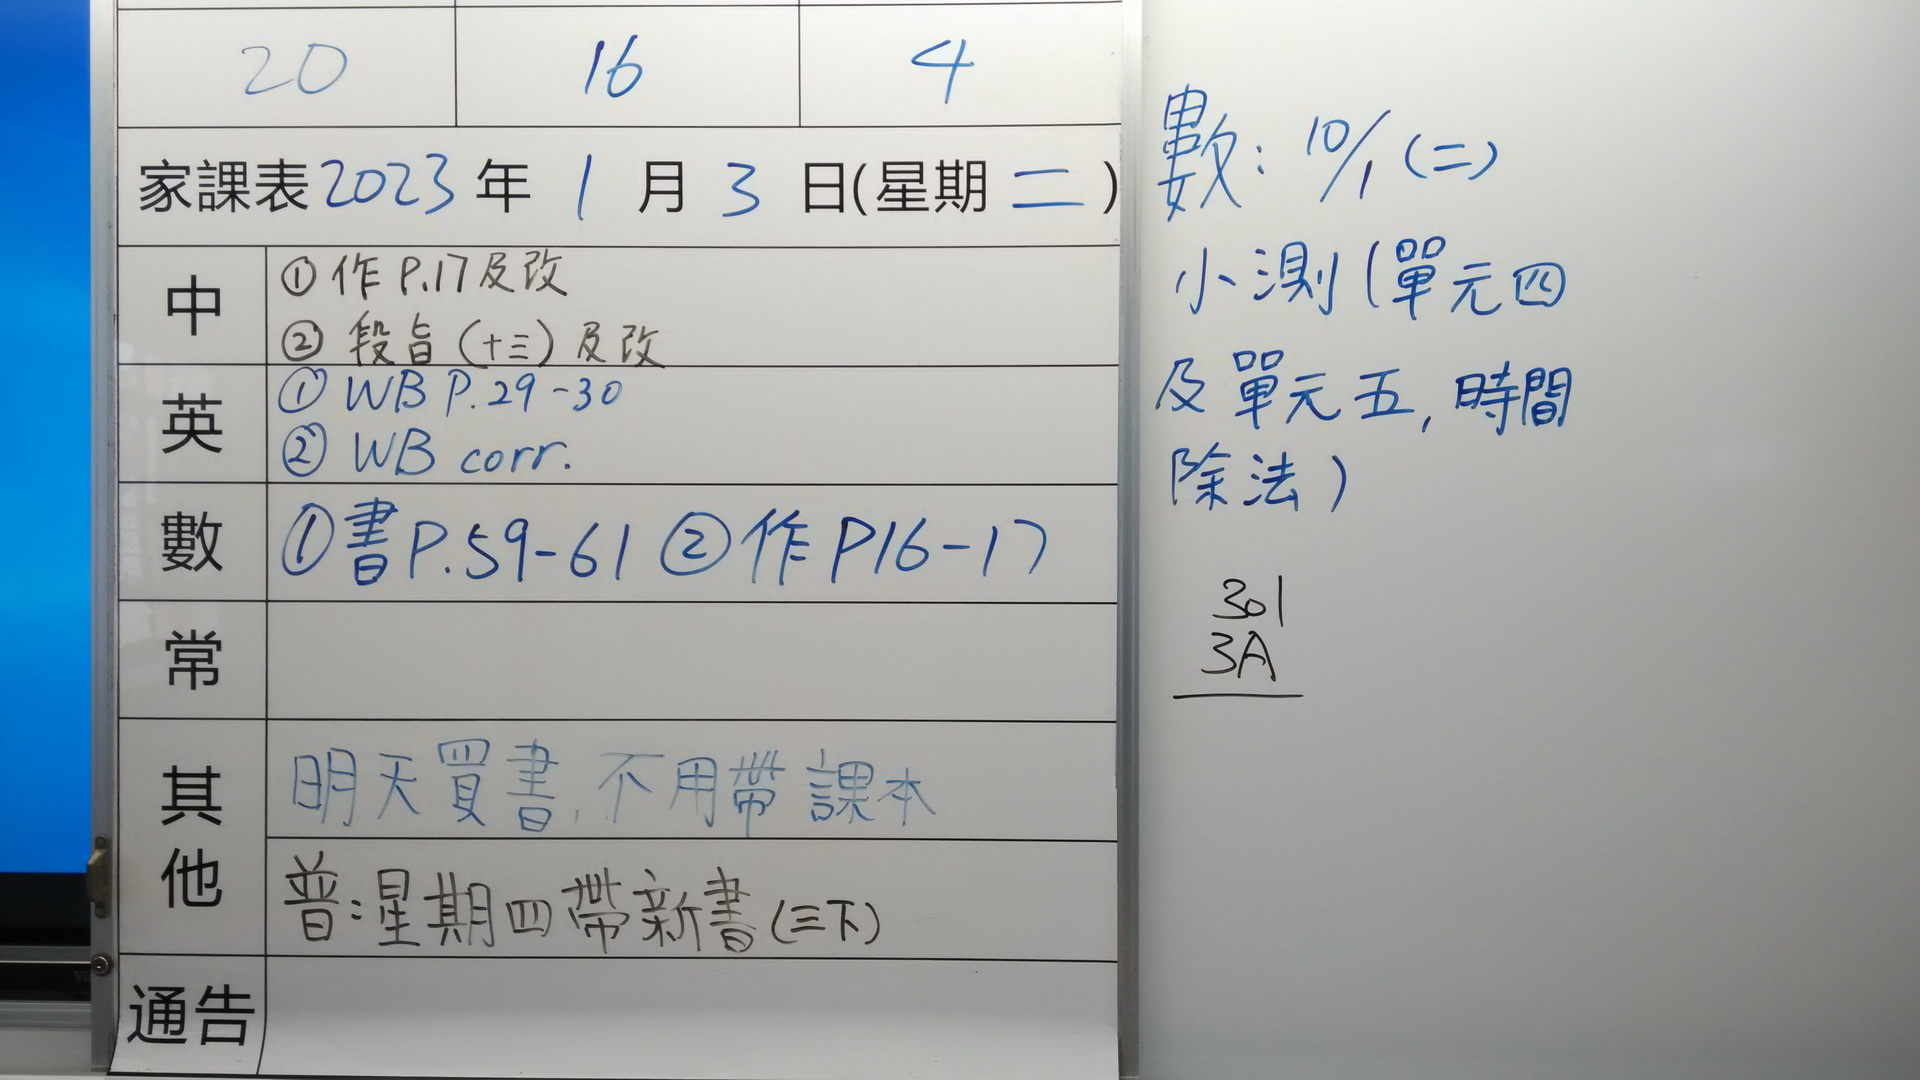 20 16 4
家課表 2023 年 1 月 3 日(星期 二 )
中
① 作 P.17 及改
② 段旨 (十三) 及改
英
① WB P.29-30
② WB corr.
數
① 書 P.59-61 ② 作 P16-17
常
其他
明天買書, 不用帶課本
普:星期四帶新書(三下)
通告
數: 10/1 (二)
小測 (單元四
及單元五, 時間
除法)
301
3A